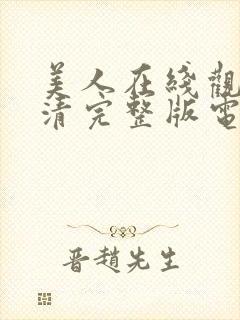 美人在綫觀
清完整版電
晋趙先生